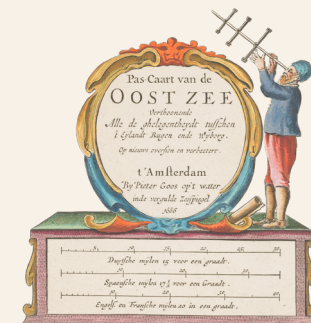 Pas-Caart van de
OOST ZEE
Verthoonende
Alle de ghelegentheydt tusschen
t' Eylandt Rugen ende Wyborg.
Op nieuws oversien en verbeetert.
t'Amsterdam
By Pieter Goos op't water
inde vergulde Zeespiegel
1666
5 10 15 20 25 30
Duytsche mylen 15 voor een graadt.
Spaensche mylen 17½ voor een Graadt.
Engelſ. en Fransche mylen 20 in een graadt.